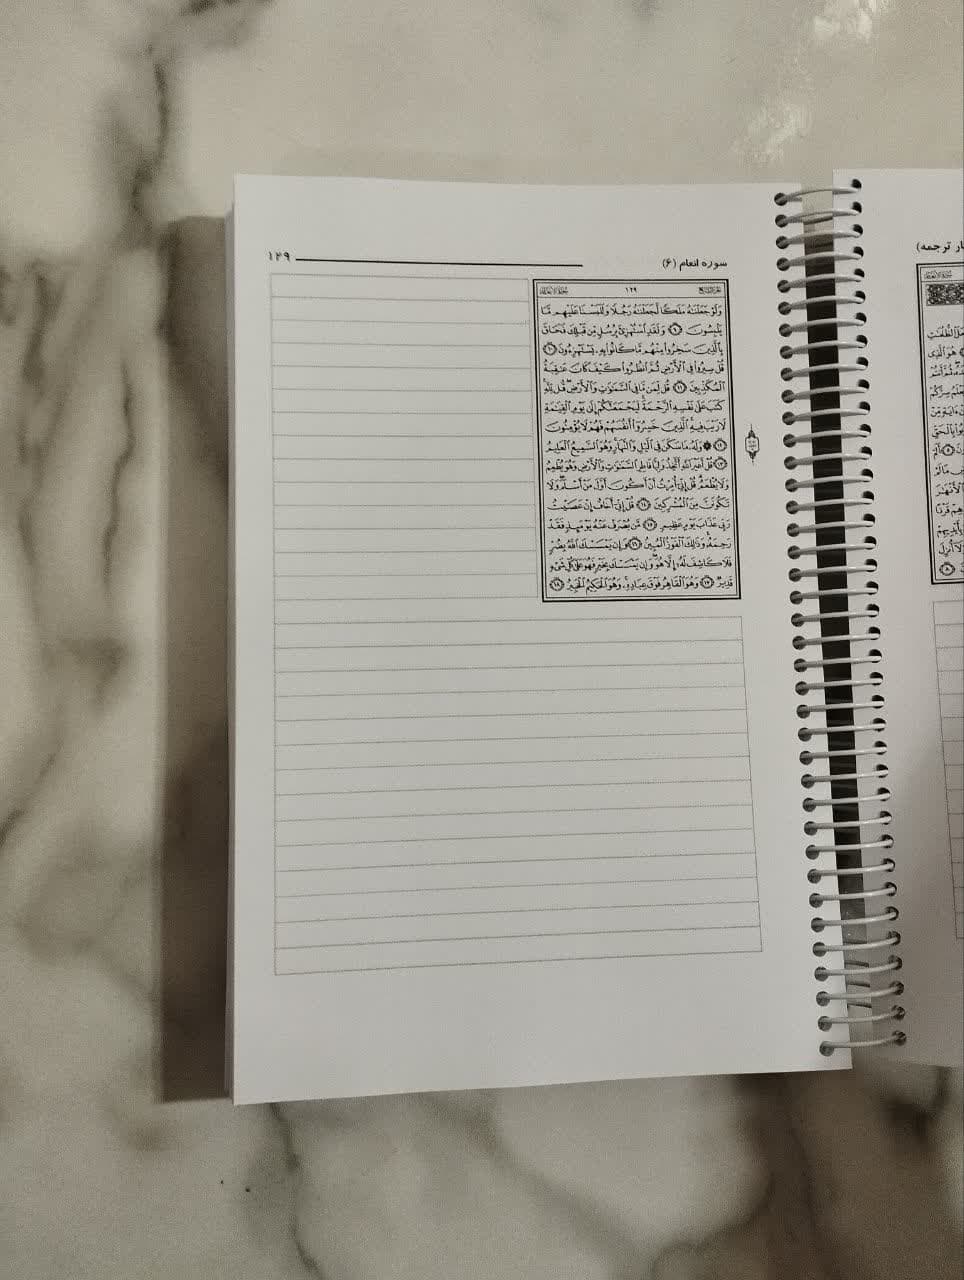 سوره انعام (۶)
۱۴۹
الجزء السابع
١٢٩
سورة الأنعام
وَلَوْ جَعَلْنَٰهُ مَلَكًا لَّجَعَلْنَٰهُ رَجُلًا وَلَلَبَسْنَا عَلَيْهِم مَّا
يَلْبِسُونَ ٩ وَلَقَدِ ٱسْتُهْزِئَ بِرُسُلٍ مِّن قَبْلِكَ فَحَاقَ
بِٱلَّذِينَ سَخِرُوا۟ مِنْهُم مَّا كَانُوا۟ بِهِۦ يَسْتَهْزِءُونَ ١٠
قُلْ سِيرُوا۟ فِى ٱلْأَرْضِ ثُمَّ ٱنظُرُوا۟ كَيْفَ كَانَ عَٰقِبَةُ
ٱلْمُكَذِّبِينَ ١١ قُل لِّمَن مَّا فِى ٱلسَّمَٰوَٰتِ وَٱلْأَرْضِ ۖ قُل لِّلَّهِ ۚ
كَتَبَ عَلَىٰ نَفْسِهِ ٱلرَّحْمَةَ ۚ لَيَجْمَعَنَّكُمْ إِلَىٰ يَوْمِ ٱلْقِيَٰمَةِ
لَا رَيْبَ فِيهِ ۚ ٱلَّذِينَ خَسِرُوٓا۟ أَنفُسَهُمْ فَهُمْ لَا يُؤْمِنُونَ
١٢ ۞ وَلَهُۥ مَا سَكَنَ فِى ٱلَّيْلِ وَٱلنَّهَارِ ۚ وَهُوَ ٱلسَّمِيعُ ٱلْعَلِيمُ
١٣ قُلْ أَغَيْرَ ٱللَّهِ أَتَّخِذُ وَلِيًّا فَاطِرِ ٱلسَّمَٰوَٰتِ وَٱلْأَرْضِ وَهُوَ يُطْعِمُ
وَلَا يُطْعَمُ ۗ قُلْ إِنِّىٓ أُمِرْتُ أَنْ أَكُونَ أَوَّلَ مَنْ أَسْلَمَ ۖ وَلَا
تَكُونَنَّ مِنَ ٱلْمُشْرِكِينَ ١٤ قُلْ إِنِّىٓ أَخَافُ إِنْ عَصَيْتُ
رَبِّى عَذَابَ يَوْمٍ عَظِيمٍ ١٥ مَّن يُصْرَفْ عَنْهُ يَوْمَئِذٍ فَقَدْ
رَحِمَهُۥ ۚ وَذَٰلِكَ ٱلْفَوْزُ ٱلْمُبِينُ ١٦ وَإِن يَمْسَسْكَ ٱللَّهُ بِضُرٍّ
فَلَا كَاشِفَ لَهُۥٓ إِلَّا هُوَ ۖ وَإِن يَمْسَسْكَ بِخَيْرٍ فَهُوَ عَلَىٰ كُلِّ شَىْءٍ
قَدِيرٌ ١٧ وَهُوَ ٱلْقَاهِرُ فَوْقَ عِبَادِهِۦ ۚ وَهُوَ ٱلْحَكِيمُ ٱلْخَبِيرُ ١٨